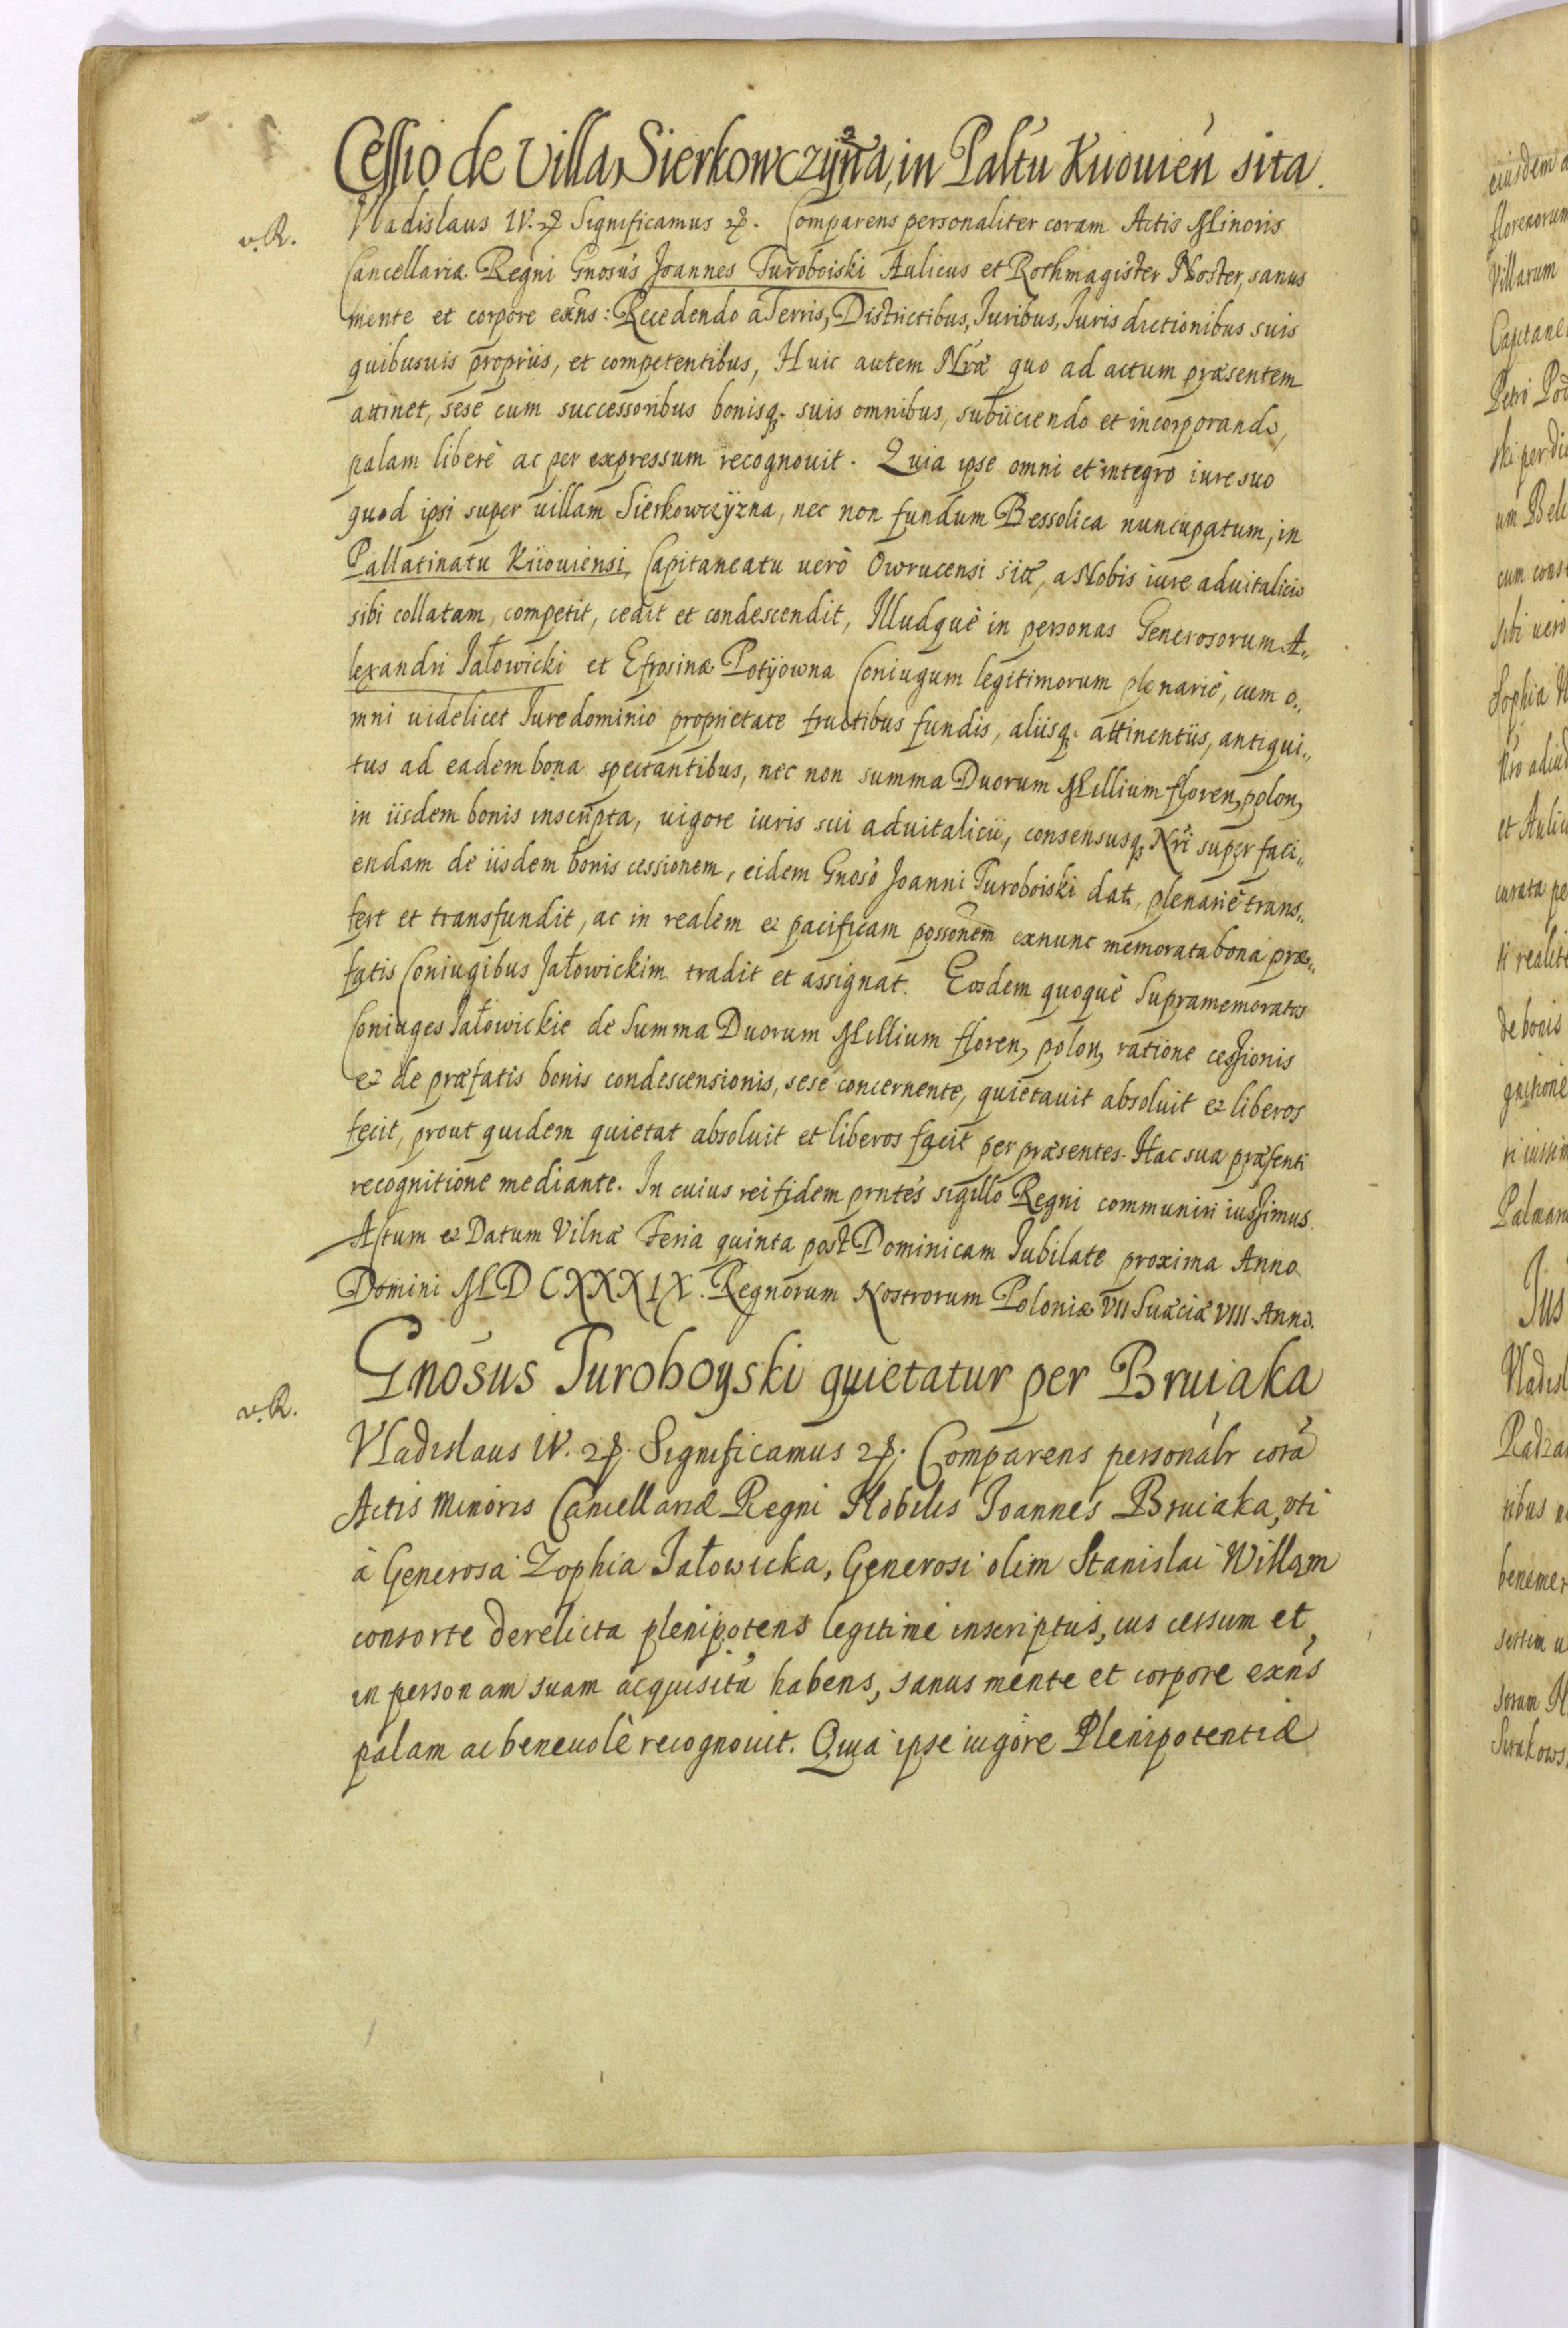 Cessio de Villa Sierkowczyzna, in Paltu Kiiouien sita.
v. R.
Vladislaus IV. etc Significamus etc. Comparens personaliter coram Actis Minoris
Cancellariæ Regni Gnosus Joannes Turoboiski Aulicus et Rothmagister Noster, sanus
mente et corpore exns: Recedendo a Terris, Districtibus, Iuribus, Iuris dictionibus suis
quibusuis proprÿs, et competentibus, Huic autem Nræ quo ad actum præsentem
attinet, sese cum successoribus bonisq. suis omnibus, subÿciendo et incorporando,
palam liberè ac per expressum recognouit. Quia ipse omni et integro iure suo
quod ipsi super uillam Sierkowczÿzna, nec non fundum Bessolica nuncupatum, in
Pallatinatu Kiiouiensi, Capitaneatu uerò Owrucensi sitæ, a Nobis iure aduitalicio
sibi collatam, competit, cedit et condescendit, Illudquè in personas Generosorum A„
lexandri Jałowicki et Efrosinæ Potÿowna Coniugum legitimorum plenariè, cum o„
mni uidelicet Iure dominio proprietate fructibus fundis, alÿsq. attinentÿs, antiqui„
tus ad eadem bona spectantibus, nec non summa Duorum Millium floren, polon,
in ÿsdem bonis inscripta, uigore iuris sui aduitalicÿ, consensusq. Nri super faci„
endam de ÿsdem bonis cessionem, eidem Gnoso Joanni Turoboiski dat, plenariè trans„
fert et transfundit, ac in realem et pacificam possonem exnunc memorata bona præ„
fatis Coniugibus Jałowickim tradit et assignat. Eosdem quoquè Supramemoratos
Coniuges Jałowickie de Summa Duorum Millium floren, polon, ratione cessionis
et de præfatis bonis condescensionis, sese concernente, quietauit absoluit et liberos
fecit, prout quidem quietat absoluit et liberos facit per præsentes. Hac sua præsenti
recognitione mediante. In cuius rei fidem prntes sigillo Regni communiri iussimus.
Actum et Datum Vilnæ Feria quinta post Dominicam Iubilate proxima Anno
Domini MDCXXXIX. Regnorum Nostrorum Poloniæ VII Suæciæ VIII Anno.
Gnosus Turoboyski quietatur per Bruiaka
v. R.
Vladislaus IV. etc. Significamus etc. Comparens personalr corā
Actis Minoris Cancellariæ Regni Nobilis Joannes Bruiaka, vti
à Generosa Zophia Jałowicka, Generosi olim Stanislai Willam
consorte derelicta plenipotens legitime inscriptus, ius cessum et
in personam suam acquisitū habens, sanus mente et corpore exns
palam ac beneuolè recognouit. Quia ipse uigore Plenipotentiæ